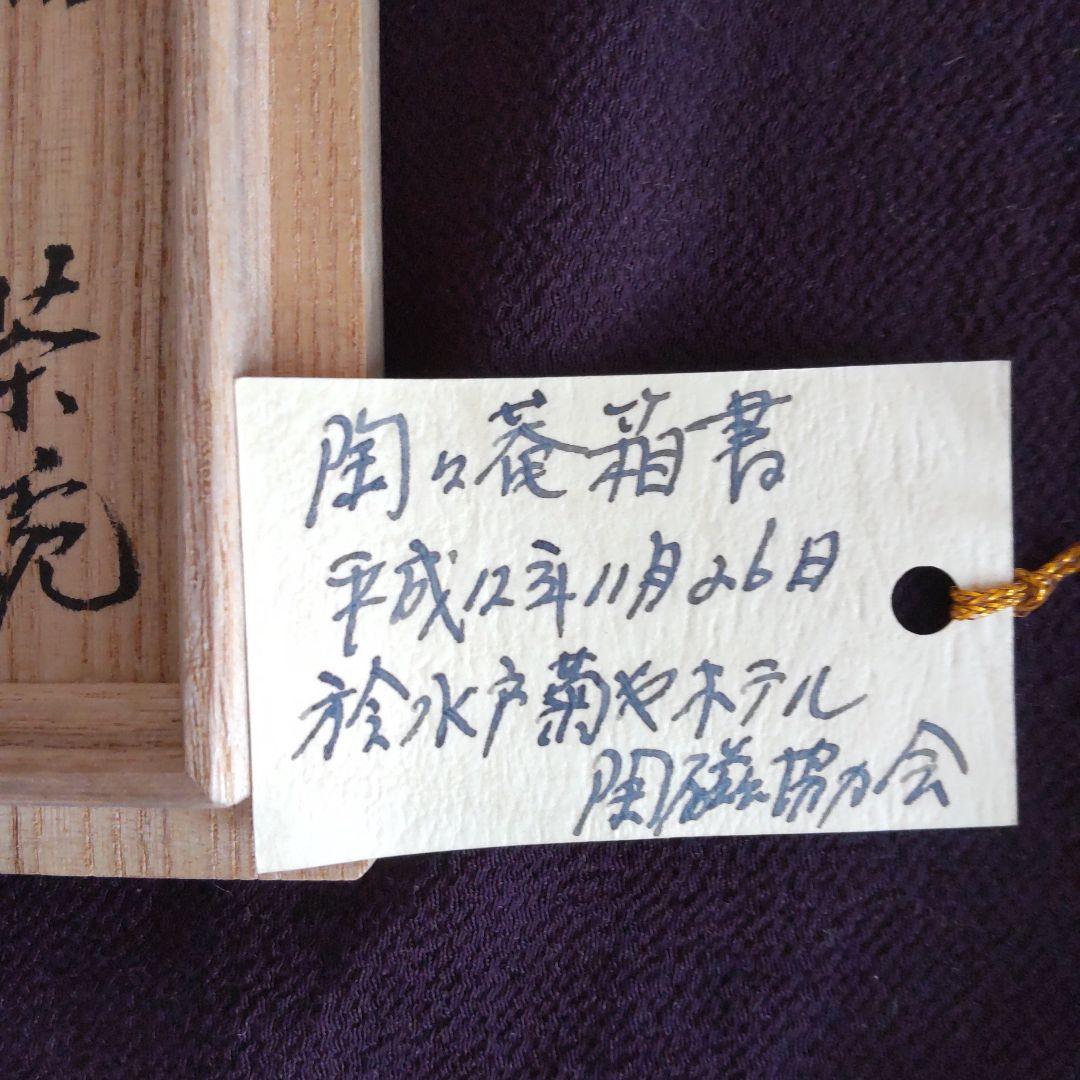 茶碗
陶々菴箱書
平成12年11月26日
於水戸菊やホテル
陶磁協力会